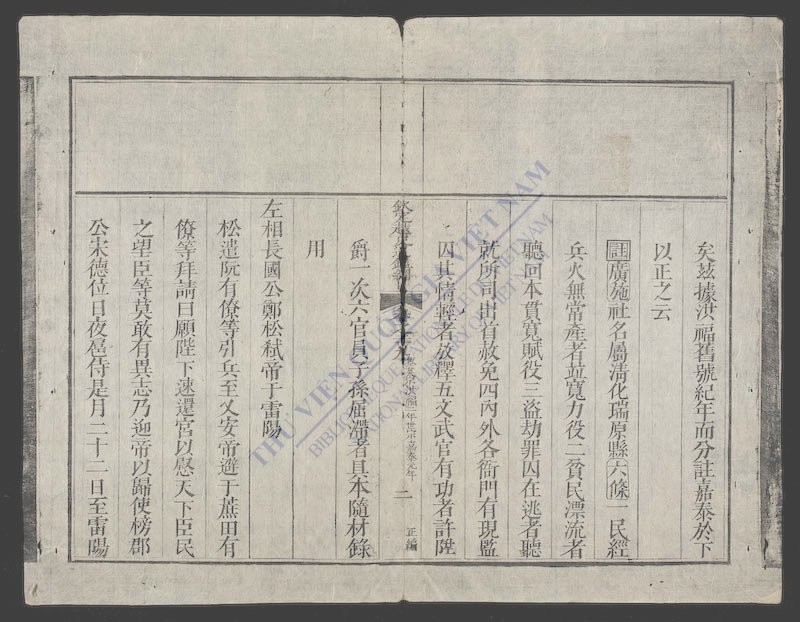 矣玆據洪福舊號紀年而分註嘉泰於下
以正之云
註廣施社名屬清化瑞原縣六條一民經
兵火無常產者並寬力役二貧民漂流者
聽回本貫寬賦役三盜劫罪囚在逃者聽
就所司出首赦免四內外各衙門有現監
囚其情輕者放釋五文武官有功者許陞
爵一次六官員子孫屈滯者具本隨材錄
用
二
正編
左相長國公鄭松弒帝于雷陽
松遣阮有僚等引兵至乂安帝遊于蔗田有
僚等拜請曰願陛下速還宮以慰天下臣民
之望臣等莫敢有異志乃迎帝以歸使榜郡
公宋德位日夜密侍是月二十二日至雷陽
THƯ VIỆN QUỐC GIA VIỆT NAM
BIBLIOTHÈQUE NATIONALE DU VIETNAM
NATIONAL LIBRARY OF VIETNAM